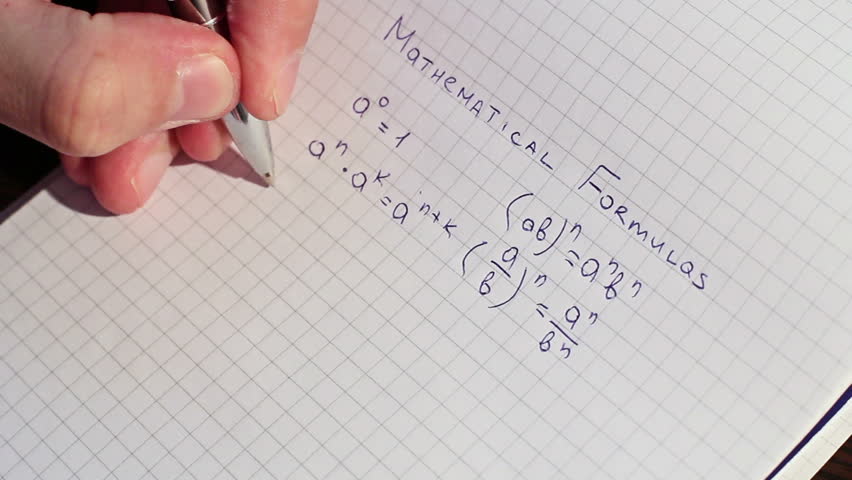 Mathematical Formulas
a⁰ = 1
aⁿ · aᵏ = aⁿ⁺ᵏ
(ab)ⁿ = aⁿbⁿ
(a/b)ⁿ = aⁿ/bⁿ